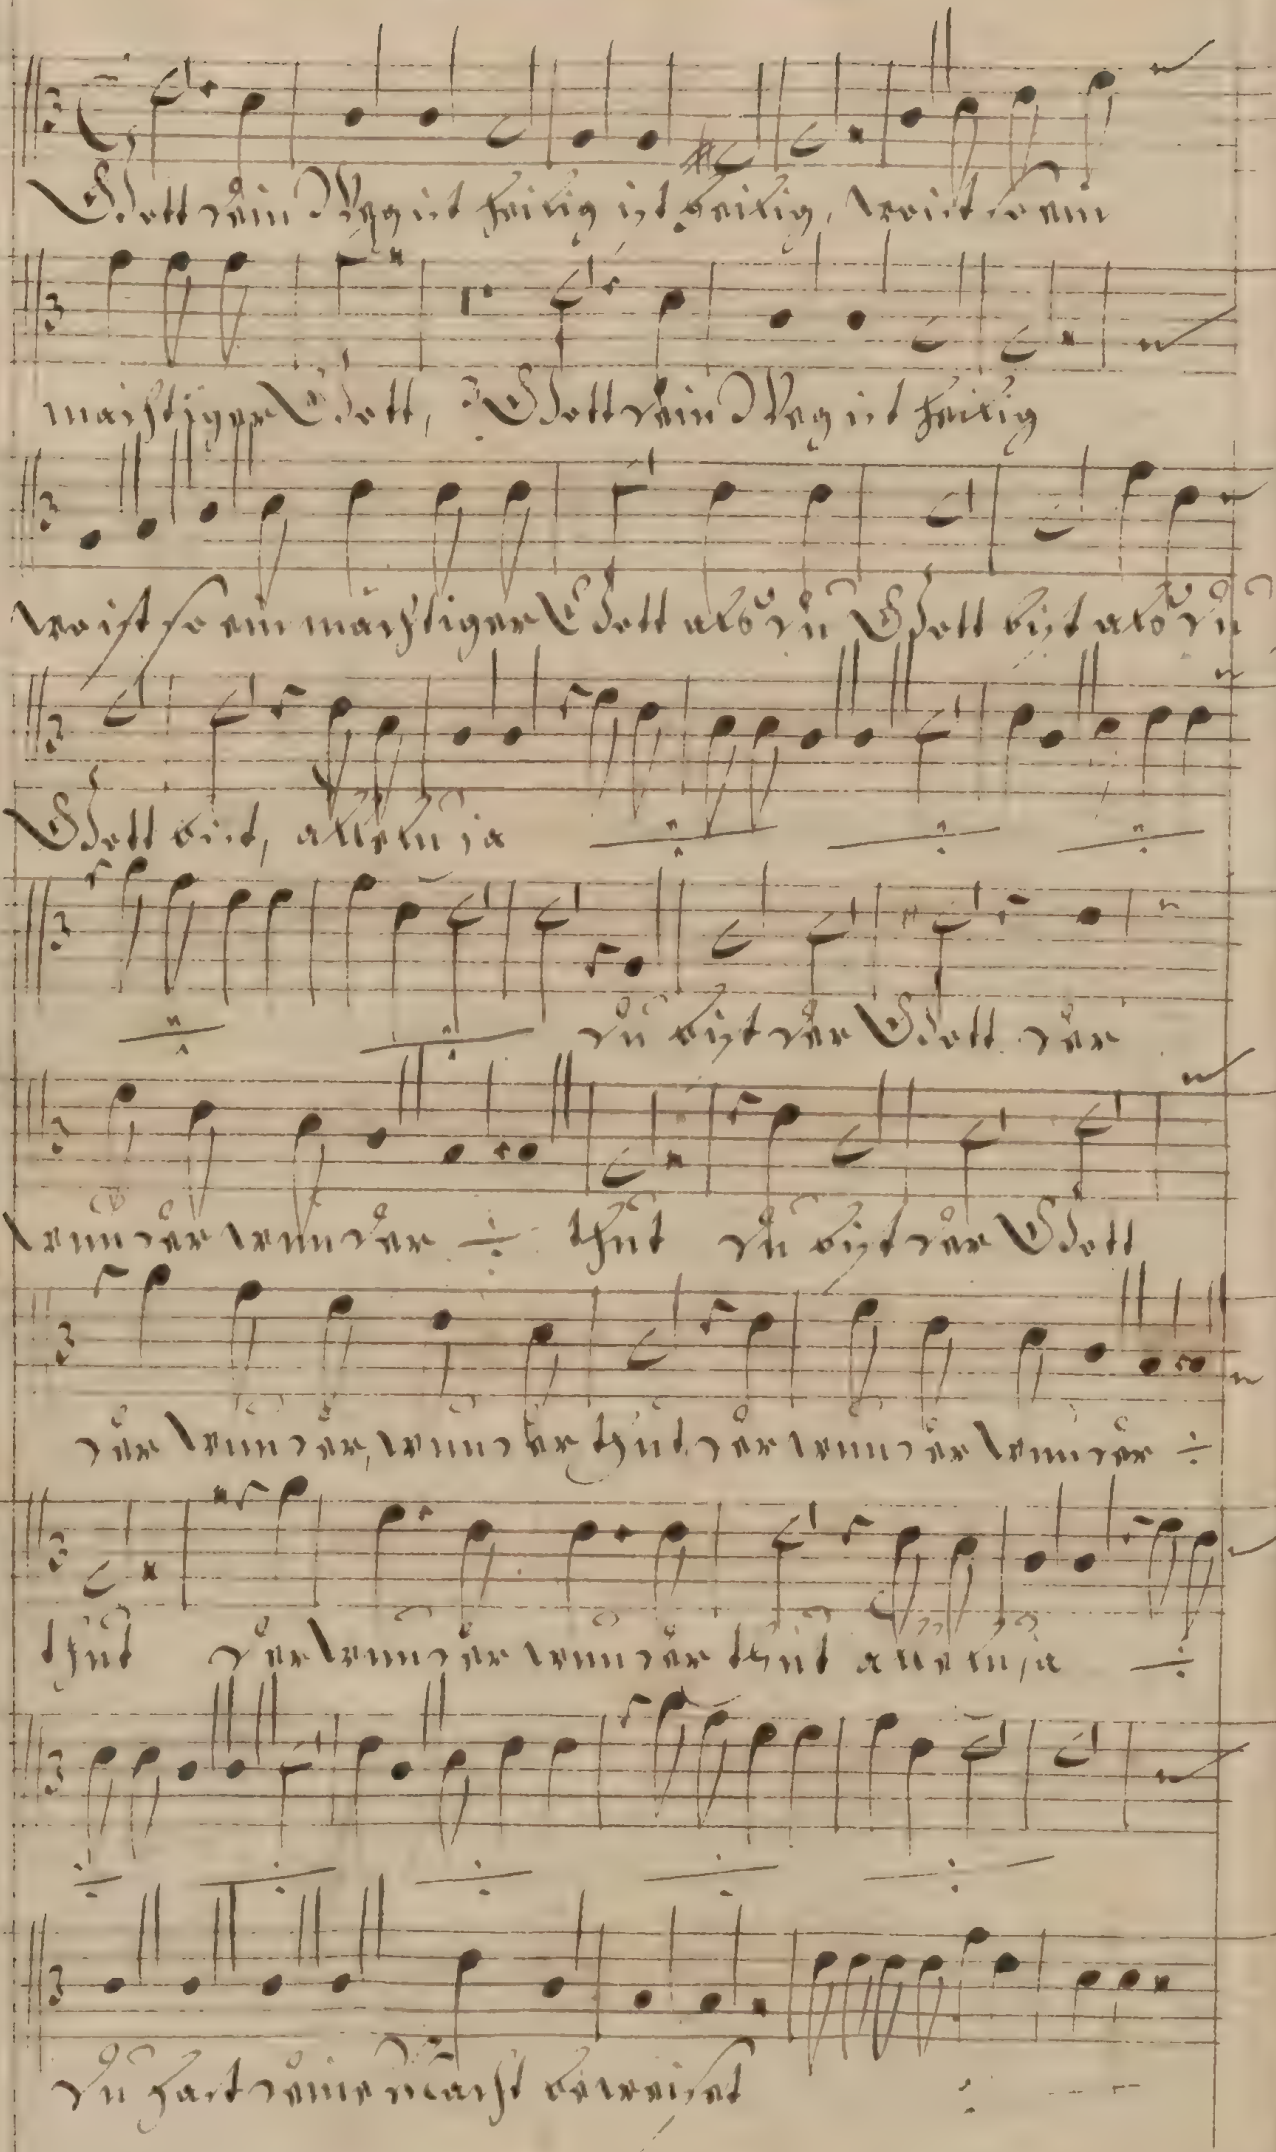 Gott dein Weg ist heilig ist heilig, wo ist so ein
mächtiger Gott, Gott dein Weg ist heilig
wo ist so ein mächtiger Gott als du Gott bist als du
Gott bist, alleluja ÷ ÷ ÷
÷ ÷ du bist der Gott der
wunder wunder ÷ thut du bist der Gott
der wunder, wunder thut der wunder wunder ÷
thut der wunder wunder thut alleluja ÷
÷ ÷ ÷ ÷ ÷
du hast deine Macht beweiset ÷